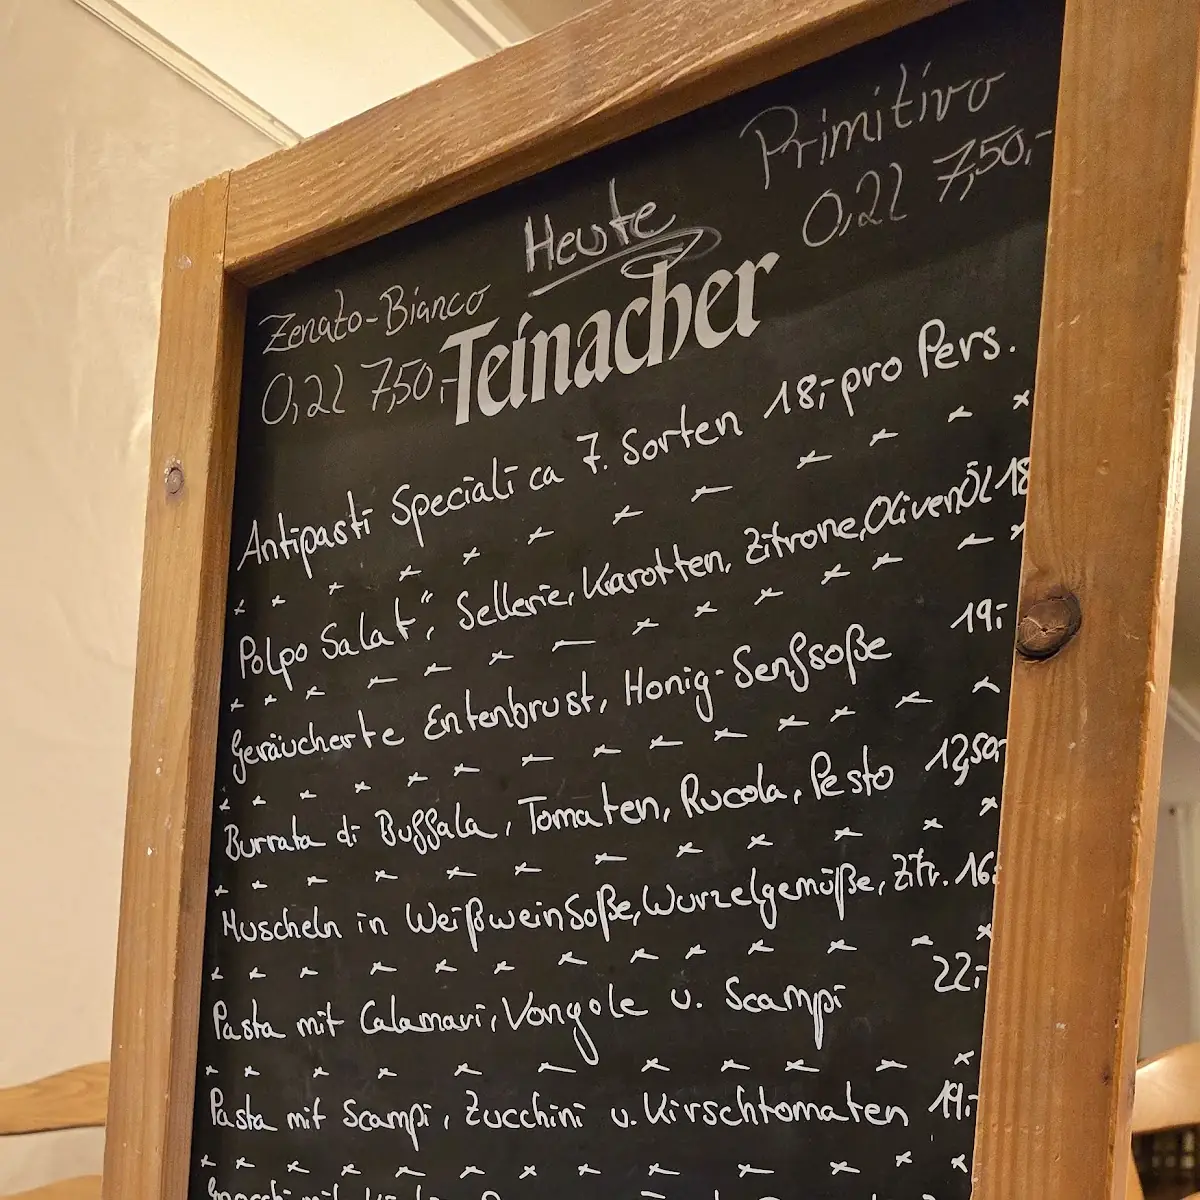 Heute
Primitivo
0,2l 7,50,-
Zenato-Bianco
0,2l 7,50,-
Teinacher
Antipasti Speciali ca 7. Sorten 18,- pro Pers.
Polpo Salat", Sellerie, Karotten, Zitrone, OlivenÖl 18
Geräucherte Entenbrust, Honig-Senfsoße 19,-
Burrata di Buffala, Tomaten, Rucola, Pesto 12,50,-
Muscheln in WeißweinSoße, Wurzelgemüße, Zitr. 16,
Pasta mit Calamari, Vongole u. Scampi 22,-
Pasta mit Scampi, Zucchini u. Kirschtomaten 19,-